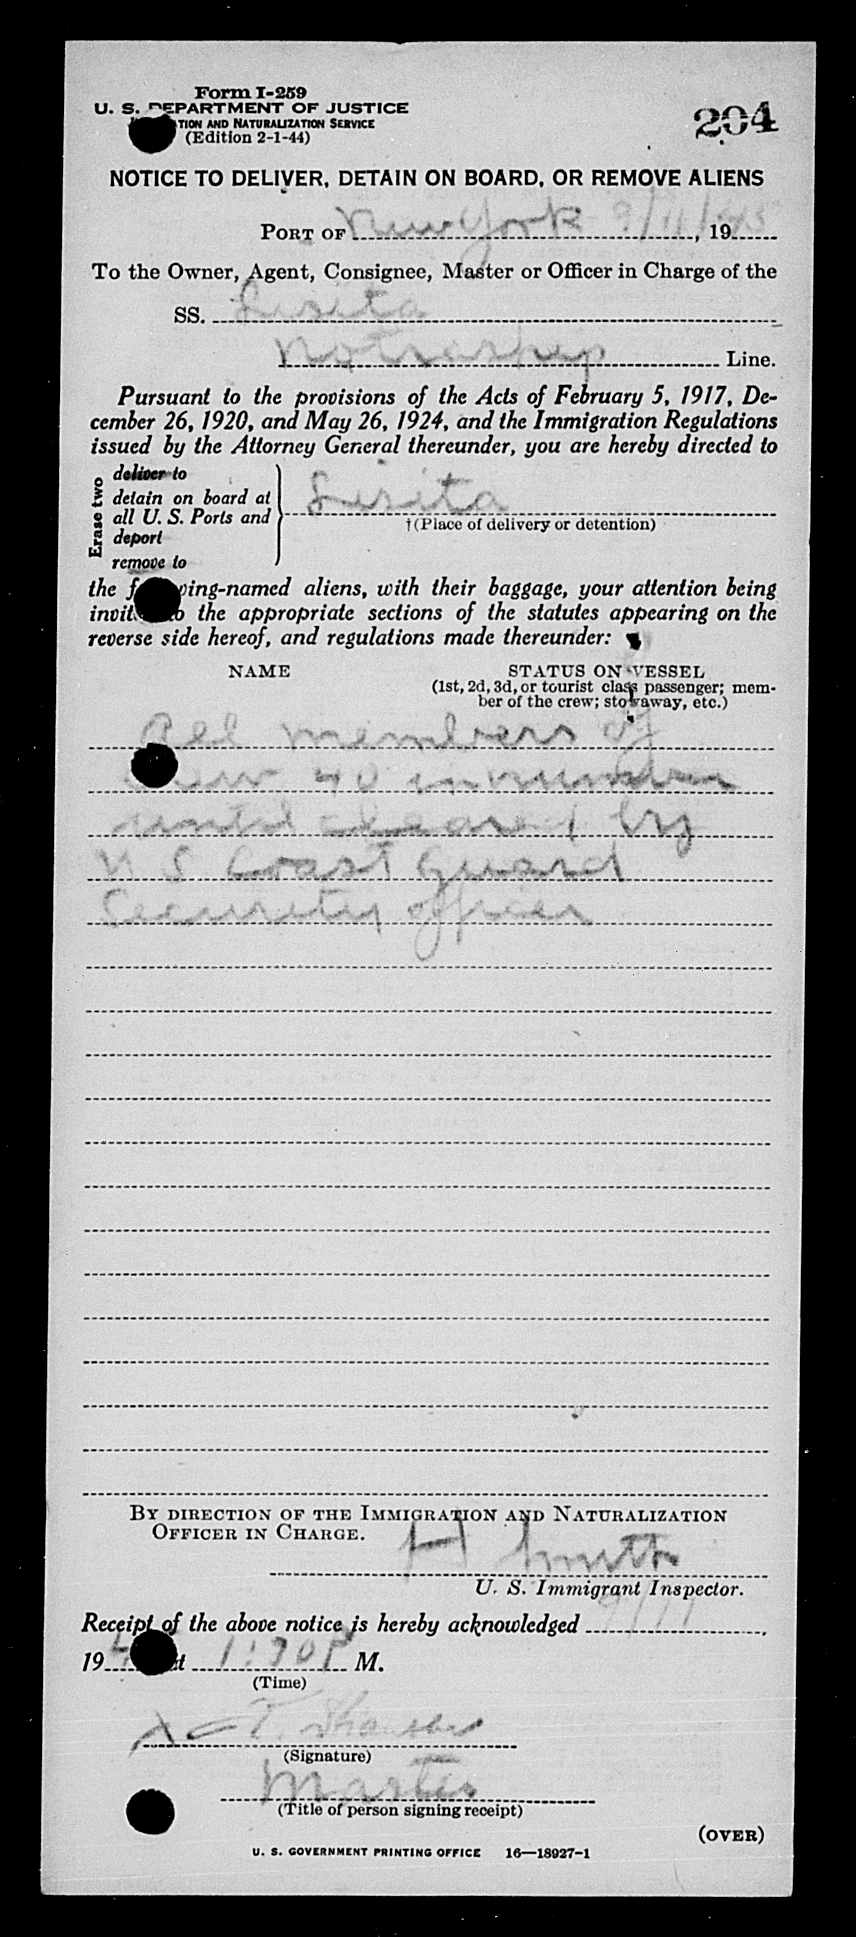 Form I-259
U. S. DEPARTMENT OF JUSTICE
TION AND NATURALIZATION SERVICE
(Edition 2-1-44)
204
NOTICE TO DELIVER, DETAIN ON BOARD, OR REMOVE ALIENS
PORT OF New York 9/11/45, 19
To the Owner, Agent, Consignee, Master or Officer in Charge of the
SS. Lisita
Notraship Line.
Pursuant to the provisions of the Acts of February 5, 1917, De-
cember 26, 1920, and May 26, 1924, and the Immigration Regulations
issued by the Attorney General thereunder, you are hereby directed to
Erase two
deliver to
detain on board at
all U. S. Ports and
deport
remove to
Lisita
†(Place of delivery or detention)
the f ing-named aliens, with their baggage, your attention being
invit the appropriate sections of the statutes appearing on the
reverse side hereof, and regulations made thereunder:
NAME STATUS ON VESSEL
(1st, 2d, 3d, or tourist class passenger; mem-
ber of the crew; stowaway, etc.)
All members of
crew 40 in number
until cleared by
U S Coast Guard
Security officer
BY DIRECTION OF THE IMMIGRATION AND NATURALIZATION
OFFICER IN CHARGE.
H Smith
U. S. Immigrant Inspector.
Receipt of the above notice is hereby acknowledged 9/11,
19 4 t 1:30 P M.
(Time)
X
(Signature)
Master
(Title of person signing receipt)
(OVER)
U. S. GOVERNMENT PRINTING OFFICE 16—18927-1